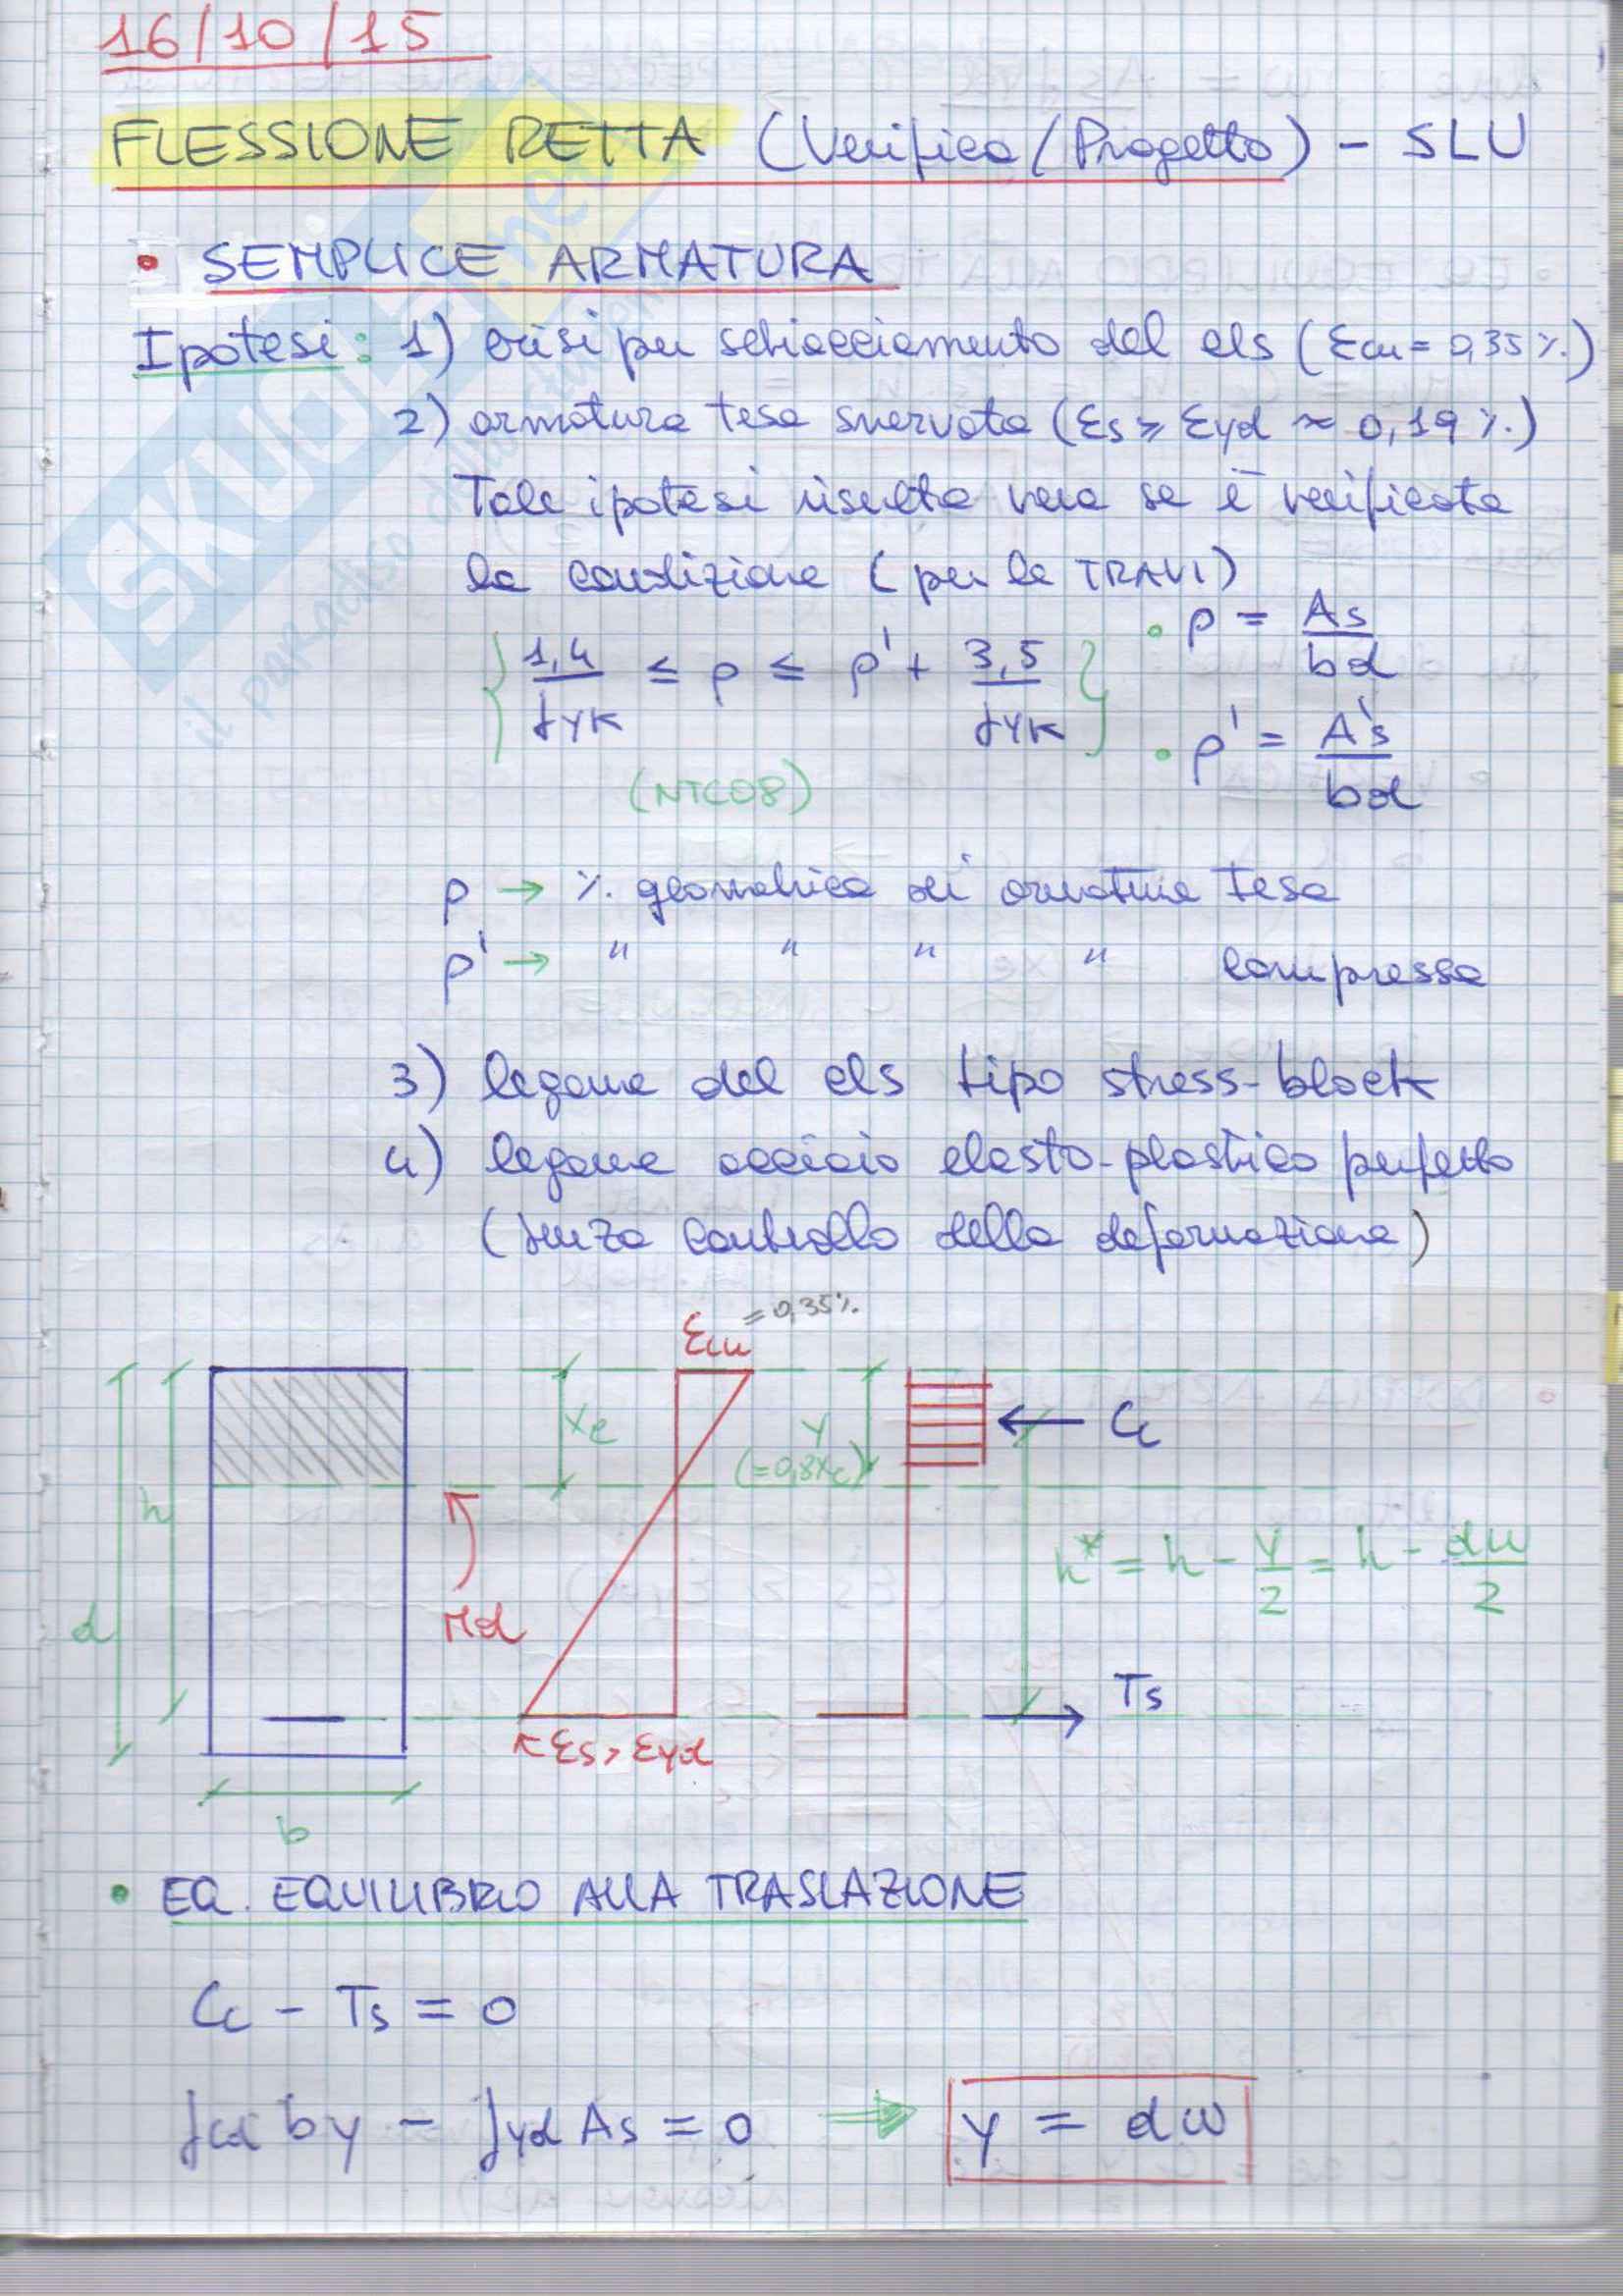 16/10/15
FLESSIONE RETTA (Verifica/Progetto) - SLU
• SEMPLICE ARMATURA
Ipotesi: 1) crisi per schiacciamento del cls (εcu = 0,35 %.)
2) armatura tesa snervata (εs ≥ εyd ≈ 0,19 %.)
Tale ipotesi risulta vera se è verificata
la condizione (per le TRAVI)
{ 1,4/fyk ≤ ρ ≤ ρ' + 3,5/fyk }
• ρ = As/bd
• ρ' = A's/bd
(NTC08)
ρ → %. geometrica di armatura tesa
ρ' → " " " " compressa
3) legame del cls tipo stress-block
4) legame acciaio elasto-plastico perfetto
(senza controllo della deformazione)
εcu = 0,35%.
d
h
xc
y
(=0,8xc)
Cc
Md
h* = h - y/2 = h - dω/2
Ts
εs > εyd
b
• EQ. EQUILIBRIO ALLA TRASLAZIONE
Cc - Ts = 0
fcd by - fyd As = 0 ⇒ y = dω
SKUOLA.net
il paradiso dello studente